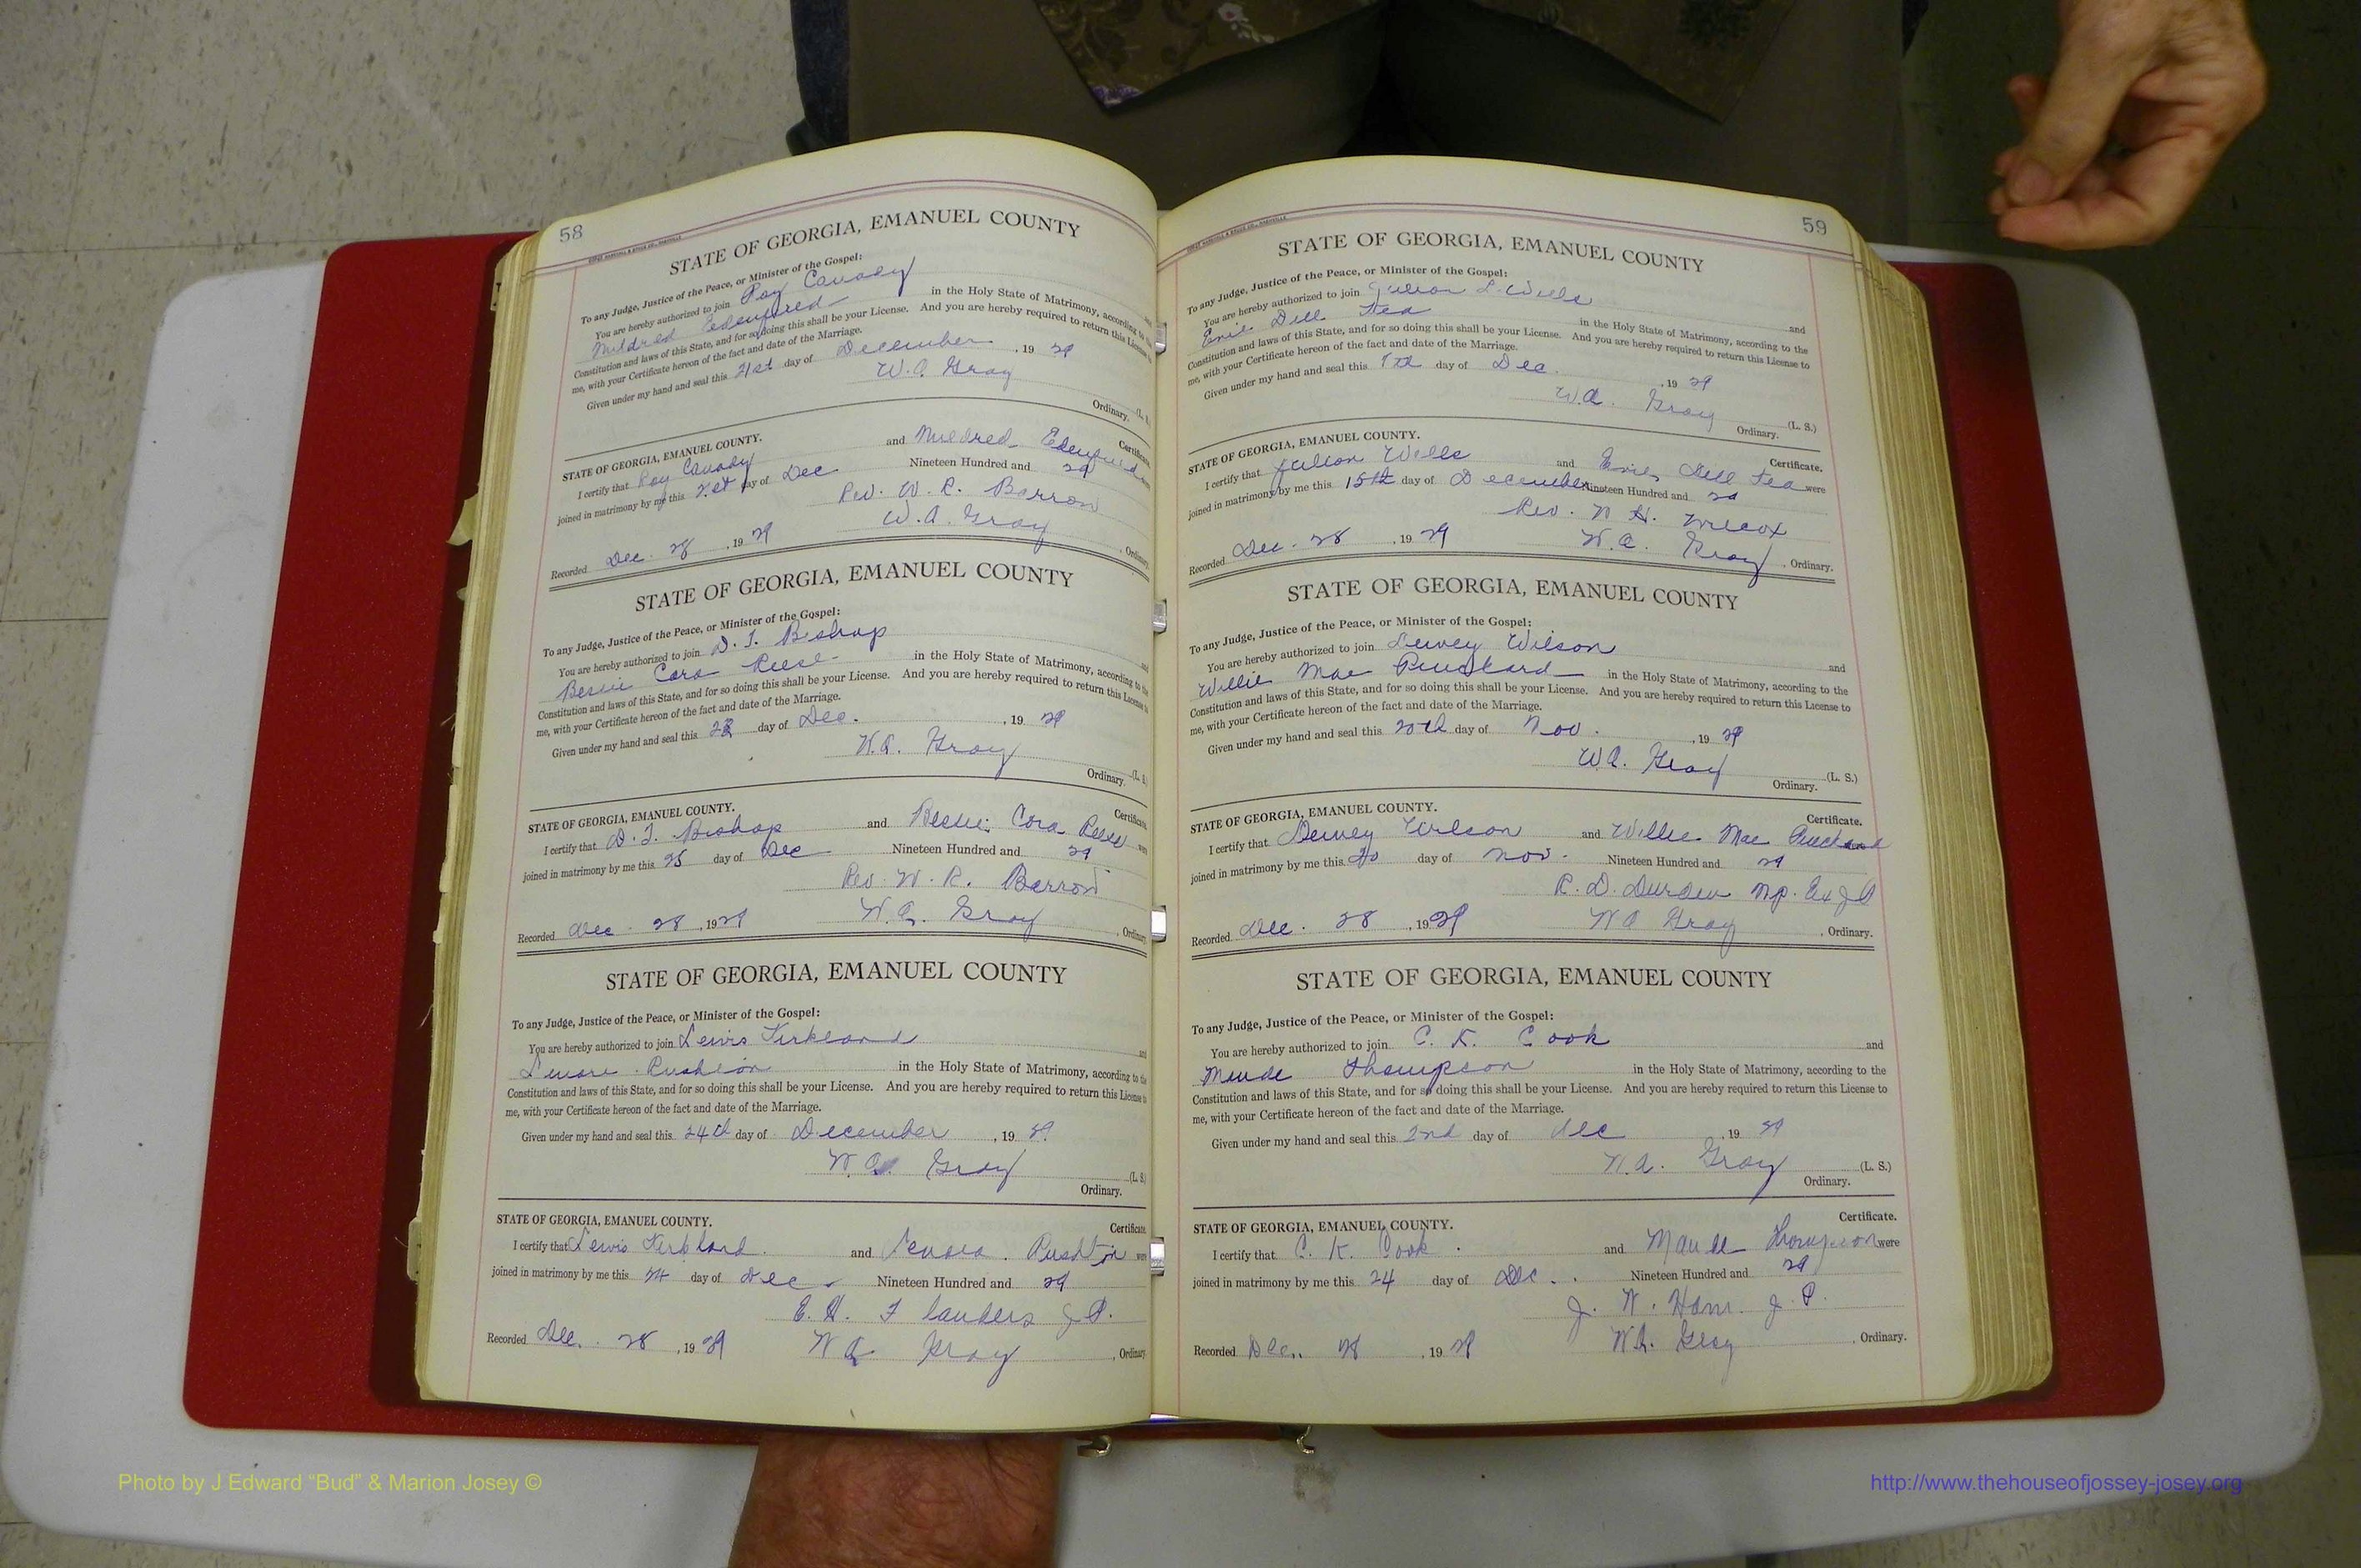 58
STATE OF GEORGIA, EMANUEL COUNTY
To any Judge, Justice of the Peace, or Minister of the Gospel:
You are hereby authorized to join Roy Canady
Mildred Edenfield in the Holy State of Matrimony, according to the
Constitution and laws of this State, and for so doing this shall be your License. And you are hereby required to return this License
me, with your Certificate hereon of the fact and date of the Marriage.
Given under my hand and seal this 21st day of December, 19 29
W.A. Gray
Ordinary. (L. S.
STATE OF GEORGIA, EMANUEL COUNTY. Certificate.
I certify that Roy Canady and Mildred Edenfield
joined in matrimony by me this 21st day of Dec Nineteen Hundred and 29
Rev. W. R. Barron
Recorded Dec. 28, 19 29 W.A. Gray, Ordinary
STATE OF GEORGIA, EMANUEL COUNTY
To any Judge, Justice of the Peace, or Minister of the Gospel:
You are hereby authorized to join D. I. Bishop and
Bessie Cora Reese in the Holy State of Matrimony, according to the
Constitution and laws of this State, and for so doing this shall be your License. And you are hereby required to return this License to
me, with your Certificate hereon of the fact and date of the Marriage.
Given under my hand and seal this day of Dec., 19 29
W.A. Gray
Ordinary. (L. S.
STATE OF GEORGIA, EMANUEL COUNTY. Certificate.
I certify that D. I. Bishop and Bessie Cora Reese were
joined in matrimony by me this 25 day of Dec Nineteen Hundred and 29
Rev. W. R. Barron
Recorded Dec. 28, 1929 W.A. Gray, Ordinary
STATE OF GEORGIA, EMANUEL COUNTY
To any Judge, Justice of the Peace, or Minister of the Gospel:
You are hereby authorized to join Lewis Kirkland and
Rushton in the Holy State of Matrimony, according to the
Constitution and laws of this State, and for so doing this shall be your License. And you are hereby required to return this License to
me, with your Certificate hereon of the fact and date of the Marriage.
Given under my hand and seal this 24th day of December, 19 29
W.A. Gray
(L. S.
Ordinary.
STATE OF GEORGIA, EMANUEL COUNTY. Certificate.
I certify that Lewis Kirkland and Rushton were
joined in matrimony by me this 24 day of Dec. Nineteen Hundred and 29
E. H. Flanders J P.
Recorded Dec. 28, 19 29 W A Gray, Ordinary
59
STATE OF GEORGIA, EMANUEL COUNTY
To any Judge, Justice of the Peace, or Minister of the Gospel:
You are hereby authorized to join L. Wells and
Dell in the Holy State of Matrimony, according to the
Constitution and laws of this State, and for so doing this shall be your License. And you are hereby required to return this License to
me, with your Certificate hereon of the fact and date of the Marriage.
Given under my hand and seal this day of Dec., 19 29
W.A. Gray (L. S.)
Ordinary.
STATE OF GEORGIA, EMANUEL COUNTY. Certificate.
I certify that Wells and Dell were
joined in matrimony by me this 15th day of December Nineteen Hundred and 29
Rev. N H. Wilcox
Recorded Dec. 28, 19 29 W.A. Gray, Ordinary.
STATE OF GEORGIA, EMANUEL COUNTY
To any Judge, Justice of the Peace, or Minister of the Gospel:
You are hereby authorized to join Dewey Wilson and
Willie Mae in the Holy State of Matrimony, according to the
Constitution and laws of this State, and for so doing this shall be your License. And you are hereby required to return this License to
me, with your Certificate hereon of the fact and date of the Marriage.
Given under my hand and seal this 20th day of Nov., 19 29
W.A. Gray (L. S.)
Ordinary.
STATE OF GEORGIA, EMANUEL COUNTY. Certificate.
I certify that Dewey Wilson and Willie Mae
joined in matrimony by me this 20 day of Nov. Nineteen Hundred and 29
R. D. Durden N.P. Ex J P
Recorded Dec. 28, 1929 W A Gray, Ordinary.
STATE OF GEORGIA, EMANUEL COUNTY
To any Judge, Justice of the Peace, or Minister of the Gospel:
You are hereby authorized to join C. K. Cook and
Maude Thompson in the Holy State of Matrimony, according to the
Constitution and laws of this State, and for so doing this shall be your License. And you are hereby required to return this License to
me, with your Certificate hereon of the fact and date of the Marriage.
Given under my hand and seal this 2nd day of Dec, 19 29
W.A. Gray (L. S.)
Ordinary.
STATE OF GEORGIA, EMANUEL COUNTY. Certificate.
I certify that C. K. Cook. and Maude Thompson were
joined in matrimony by me this 24 day of Dec. Nineteen Hundred and 29
J. W. J. P.
Recorded Dec. 28, 19 29 W.A. Gray, Ordinary.
Photo by J Edward “Bud” & Marion Josey ©
http://www.thehouseofjossey-josey.org